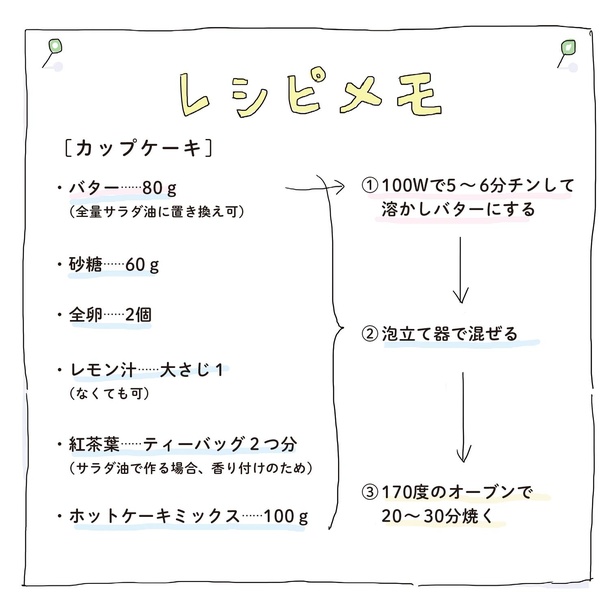 レシピメモ
［カップケーキ］
・バター……80ｇ
（全量サラダ油に置き換え可）
・砂糖……60ｇ
・全卵……2個
・レモン汁……大さじ１
（なくても可）
・紅茶葉……ティーバッグ２つ分
（サラダ油で作る場合、香り付けのため）
・ホットケーキミックス……100ｇ
①100Wで5〜6分チンして
溶かしバターにする
②泡立て器で混ぜる
③170度のオーブンで
20〜30分焼く